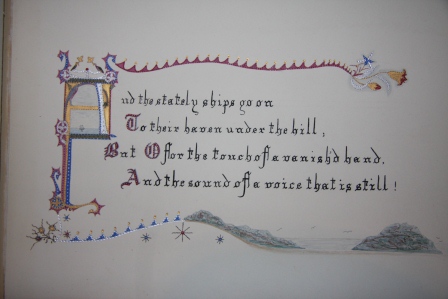 And the stately ships go on
To their haven under the hill;
But O for the touch of a vanish'd hand,
And the sound of a voice that is still!